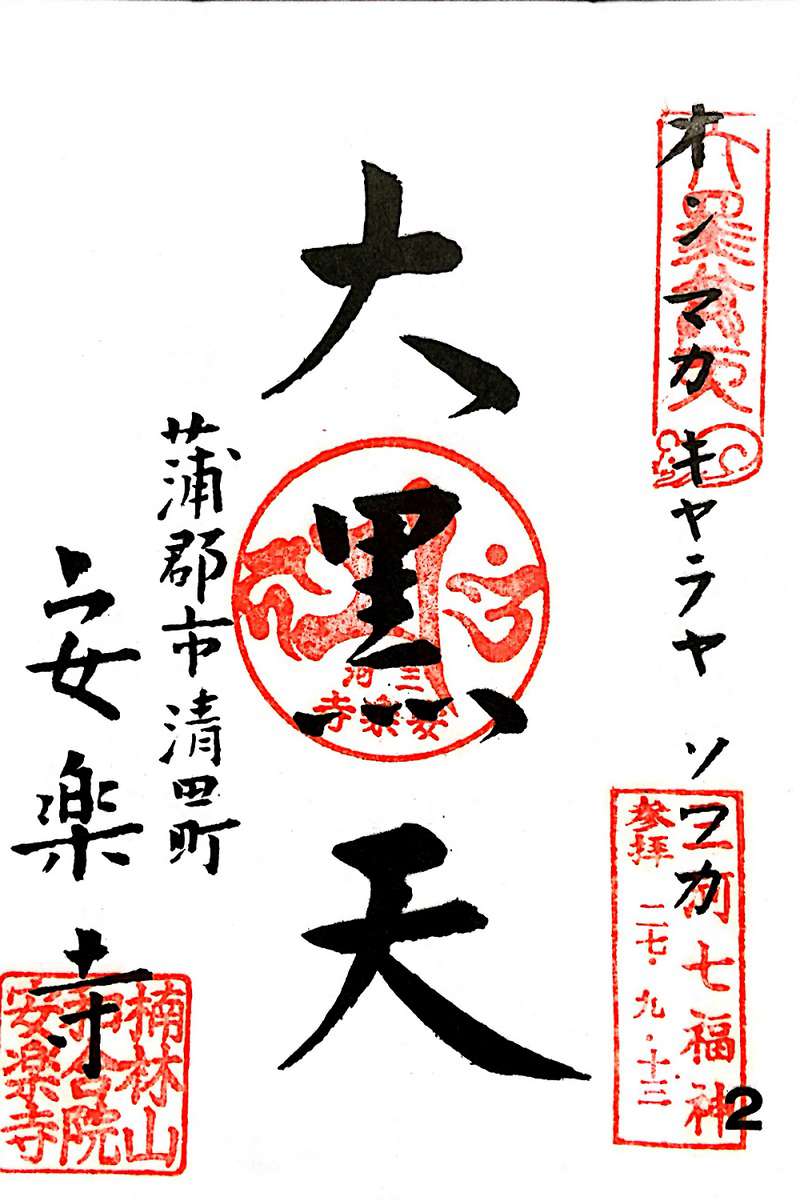 オンマカキャラヤ ソワカ
大黒天
参拝 二七・九・十三
三河七福神
三河
安楽寺
蒲郡市清田町
安楽寺
楠林山
和合院
安楽寺
2